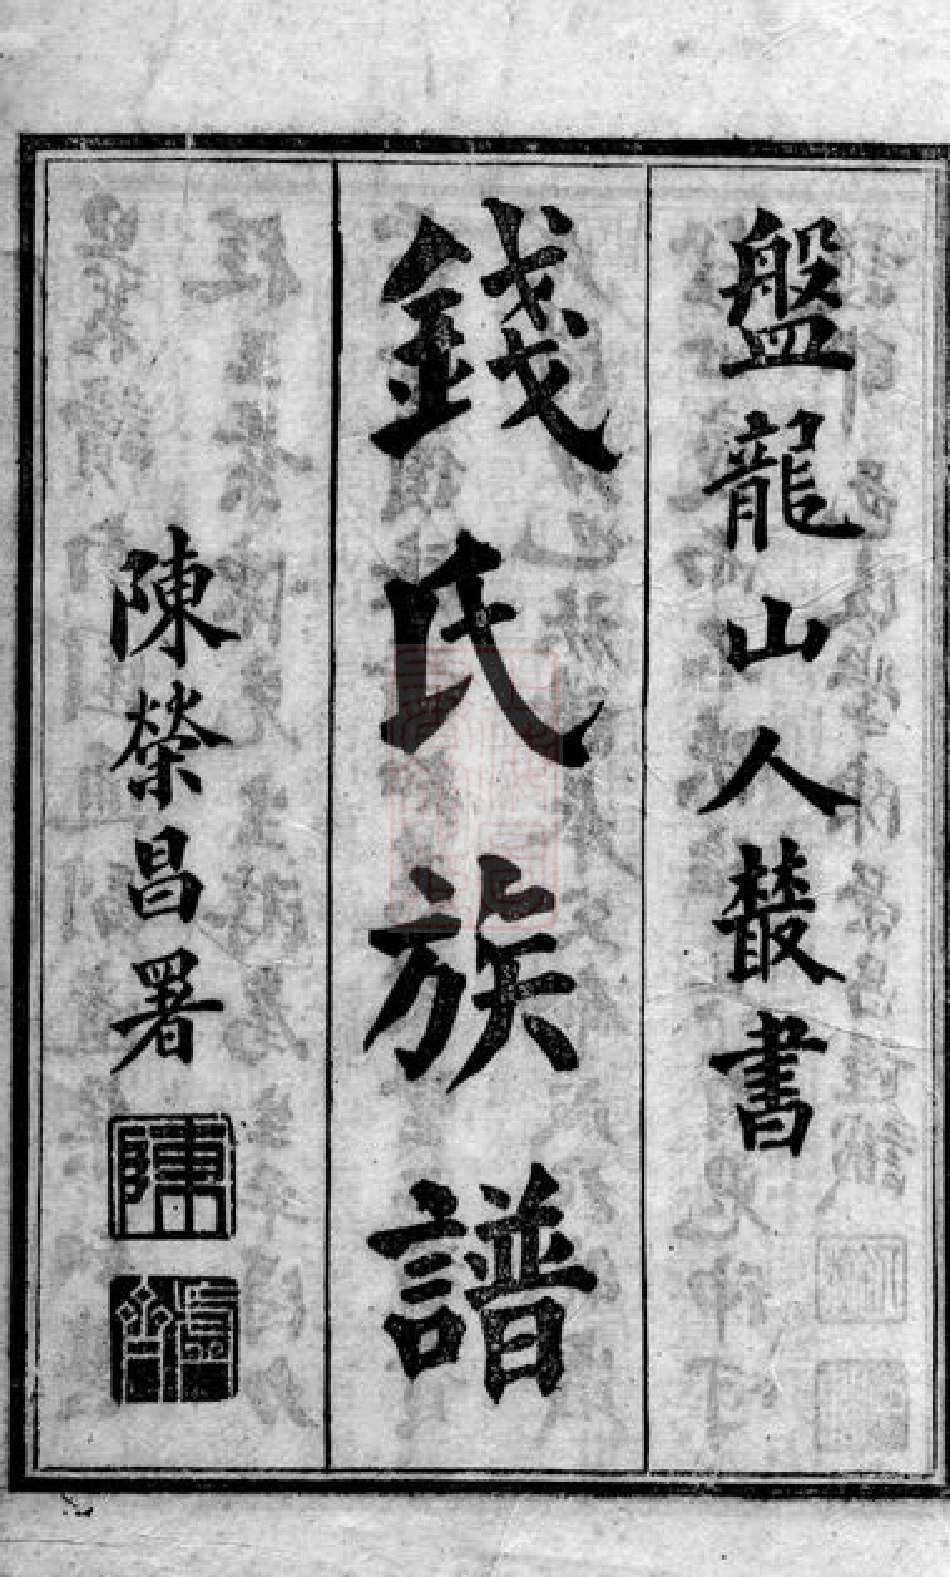 盤龍山人叢書
錢氏族譜
陳榮昌署
陳